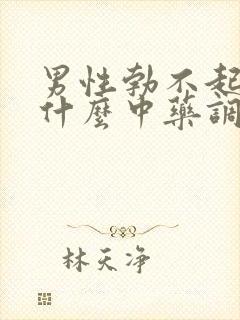 男性勃不起
什麼中藥調
林天净